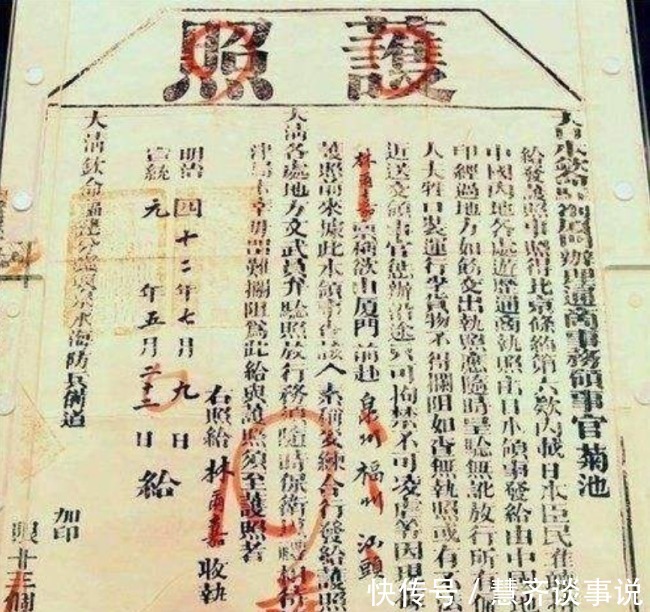 護照
大日本欽命駐劄厦門辦理通商事務領事官菊池
給發護照事照得北京條約第六款內載日本臣民准
中國內地各處遊歷通商執照由日本領事發給由中
印經過地方如飭交出執照應隨時呈驗無訛放行所
人夫牲口裝運行李貨物不得攔阻如查無執照或有
近送交領事官懲辦沿途只可拘禁不可凌虐等因現
林爾嘉稟稱欲由厦門前赴泉州福州汕頭
護照前來據此本領事查該人素稱妥練合行發給護照
大清各處地方文武員弁驗照放行務須隨時保衛
阻為此給與護照須至護照者
右照給林爾嘉收執
明治四十二年七月九日
宣統元年五月二十二日給
大清欽命福建分巡興泉永海防兵備道
加印
限廿三個
快传号/慧齐谈事说